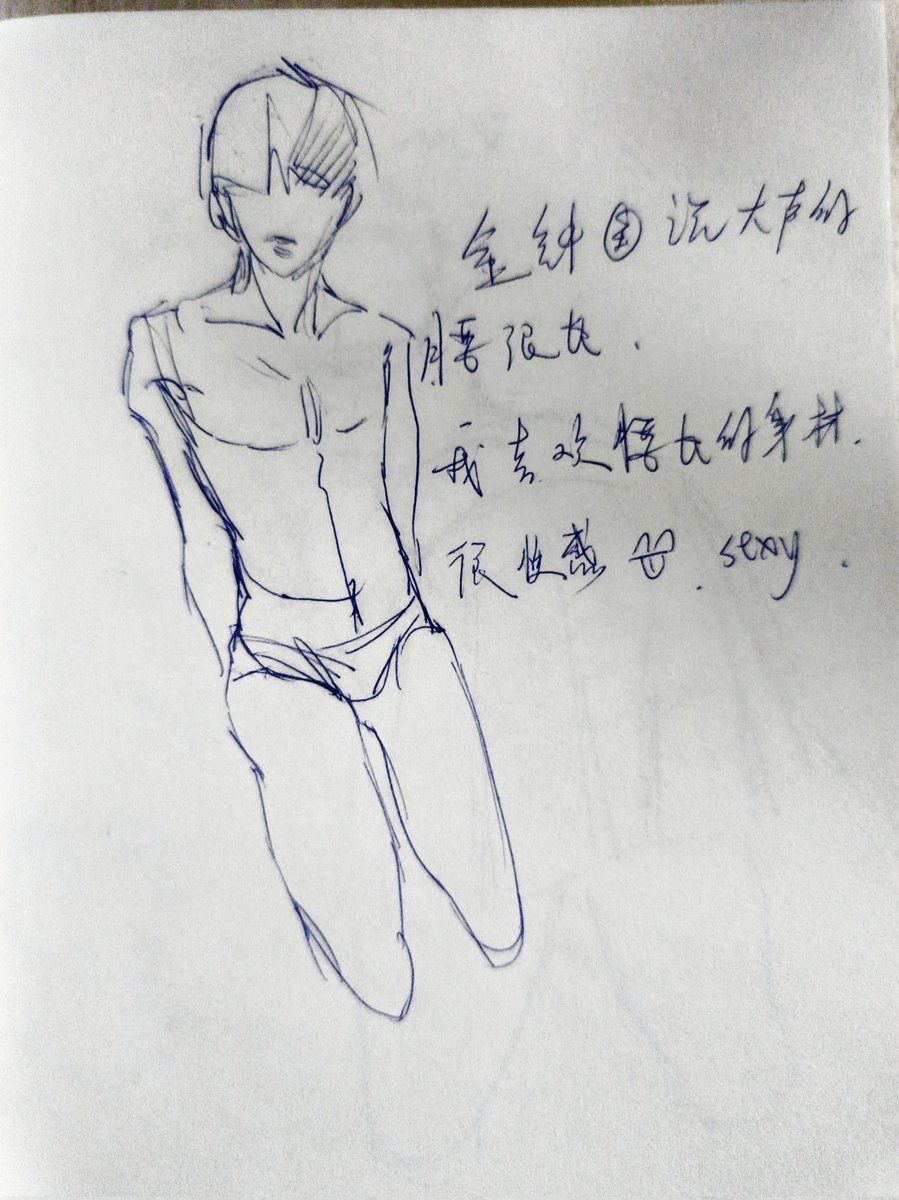 金钟国说大声的
腰很长.
我喜欢腰长的身材.
很性感 . sexy .